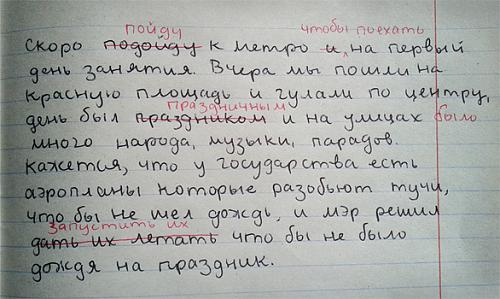 пойду чтобы поехать
Скоро подойду к метро и на первый
день занятия. Вчера мы пошли на
красную площадь и гулали по центру,
праздничным
день был праздником и на улицах было
много народа, музыки, парадов.
Кажется, что у государства есть
аэропланы которые разобьют тучи,
что бы не шел дождь, и мэр решил
запустить их
дать их летать что бы не было
дождя на праздник.